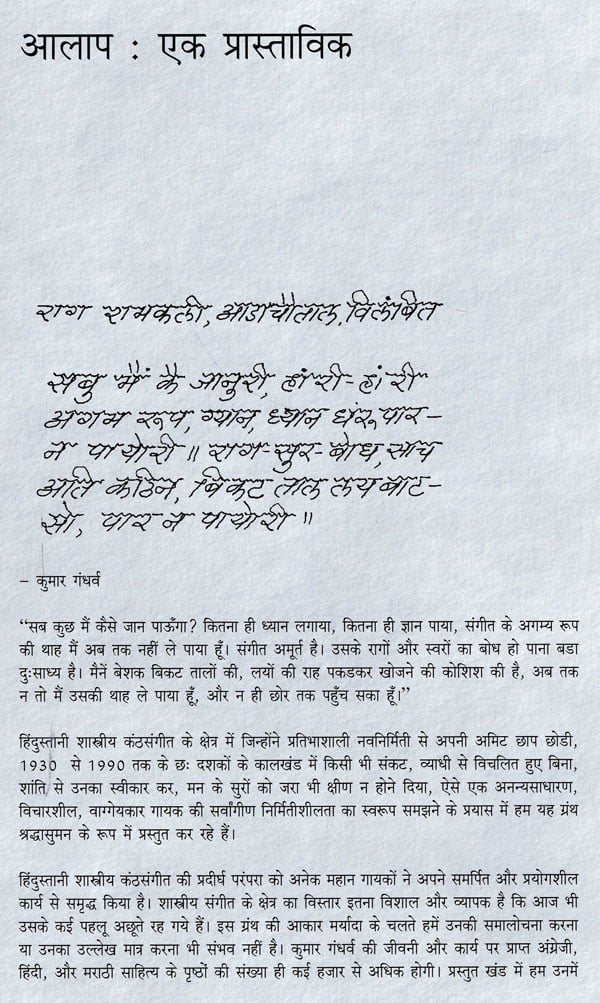 आलाप : एक प्रास्ताविक
राग रामकली, आडाचौताल, विलंबित
सबु मैं कै जानुरी, हांरी-हांरी
अगम रूप, ग्यान, ध्यान धंरू पार-
न पायोरी ॥ राग-सुर-बोध, साच
अति कठिन, बिकट ताल लय बाट-
सो, पार न पायोरी ॥
– कुमार गंधर्व
“सब कुछ मैं कैसे जान पाऊँगा? कितना ही ध्यान लगाया, कितना ही ज्ञान पाया, संगीत के अगम्य रूप
की थाह मैं अब तक नहीं ले पाया हूँ। संगीत अमूर्त है। उसके रागों और स्वरों का बोध हो पाना बडा
दुःसाध्य है। मैनें बेशक बिकट तालों की, लयों की राह पकडकर खोजने की कोशिश की है, अब तक
न तो मैं उसकी थाह ले पाया हूँ, और न ही छोर तक पहुँच सका हूँ।”
हिंदुस्तानी शास्त्रीय कंठसंगीत के क्षेत्र में जिन्होंने प्रतिभाशाली नवनिर्मिती से अपनी अमिट छाप छोडी,
1930 से 1990 तक के छः दशकों के कालखंड में किसी भी संकट, व्याधी से विचलित हुए बिना,
शांति से उनका स्वीकार कर, मन के सुरों को जरा भी क्षीण न होने दिया, ऐसे एक अनन्यसाधारण,
विचारशील, वाग्गेयकार गायक की सर्वांगीण निर्मितीशीलता का स्वरूप समझने के प्रयास में हम यह ग्रंथ
श्रद्धासुमन के रूप में प्रस्तुत कर रहे हैं।
हिंदुस्तानी शास्त्रीय कंठसंगीत की प्रदीर्घ परंपरा को अनेक महान गायकों ने अपने समर्पित और प्रयोगशील
कार्य से समृद्ध किया है। शास्त्रीय संगीत के क्षेत्र का विस्तार इतना विशाल और व्यापक है कि आज भी
उसके कई पहलू अछूते रह गये हैं। इस ग्रंथ की आकार मर्यादा के चलते हमें उनकी समालोचना करना
या उनका उल्लेख मात्र करना भी संभव नहीं है। कुमार गंधर्व की जीवनी और कार्य पर प्राप्त अंग्रेजी,
हिंदी, और मराठी साहित्य के पृष्ठों की संख्या ही कई हजार से अधिक होगी। प्रस्तुत खंड में हम उनमें